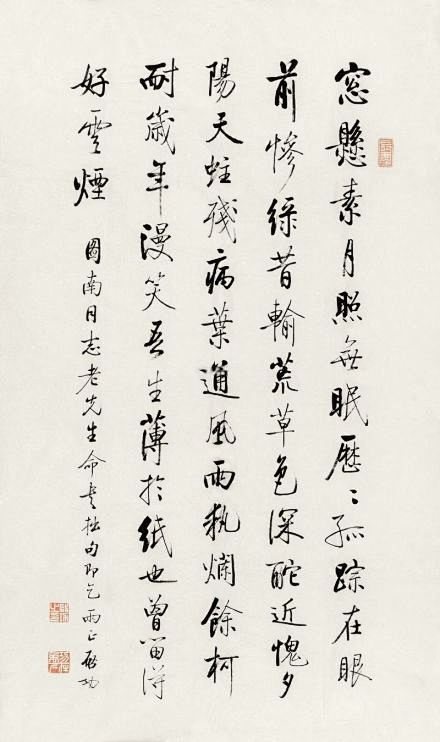 窓懸素月照無眠歷〻孤踪在眼
前慘綠昔輸荒草色深酡近愧夕
陽天蛀殘病葉通風雨執爛餘柯
耐歲年漫笑吾生薄於紙也曾留得
好雲煙 圖南同志老先生命書拙句即乞兩正 啟功